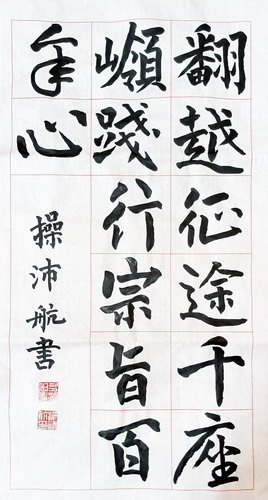 翻越征途千座
嶺踐行宗旨百
年心
操沛航書